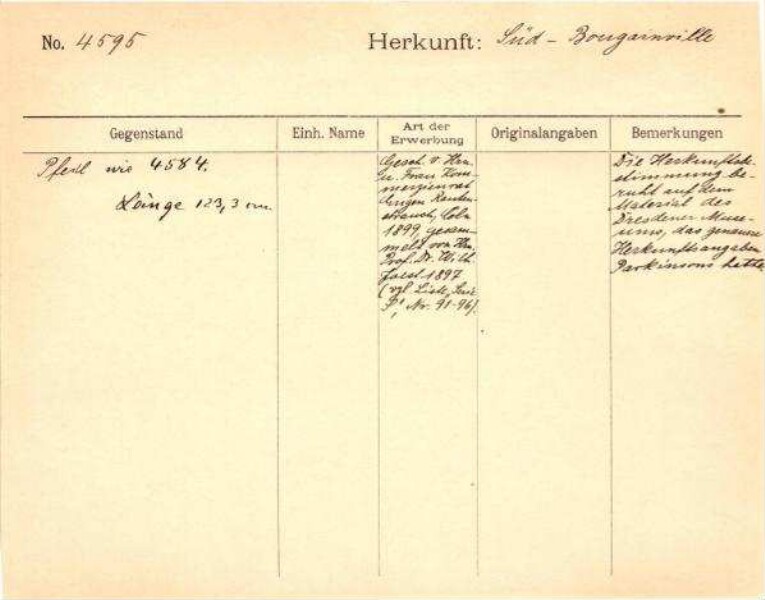 No. 4595 Herkunft: Süd - Bougainville
Gegenstand Einh. Name Art der Erwerbung Originalangaben Bemerkungen
Pfeil wie 4584.
Länge 123,3 cm.
Gesch. v. Hrn.
u. Frau Kom-
merzienrat
Eugen Rauten-
strauch, Cöln
1899, gesam-
melt von Hrn.
Prof. Dr. Wilh.
Joest 1897
(vgl. Liste, Serie
P, Nr. 91-96).
Die Herkunftsbe-
stimmung be-
ruht auf dem
Material des
Dresdener Muse-
ums, das genauere
Herkunftsangaben
Parkinsons hatte.